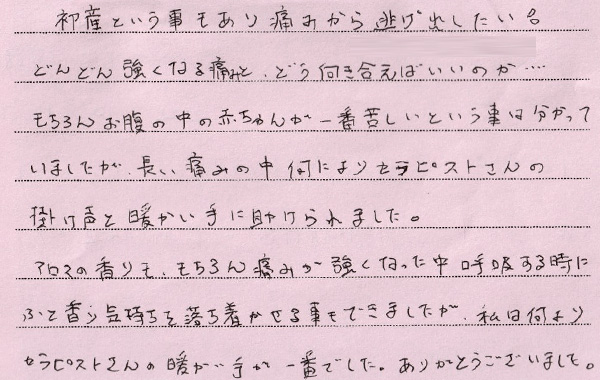 初産という事もあり痛みから逃げ出したい。
どんどん強くなる痛みと、どう向き合えばいいのか…
もちろんお腹の中の赤ちゃんが一番苦しいという事は分かって
いましたが、長い痛みの中何によりセラピストさんの
掛け声と暖かい手に助けられました。
アロマの香りも、もちろん痛みが強くなった中呼吸する時に
ふと香り気持ちを落ち着かせる事もできましたが、私は何より
セラピストさんの暖かい手が一番でした。ありがとうございました。